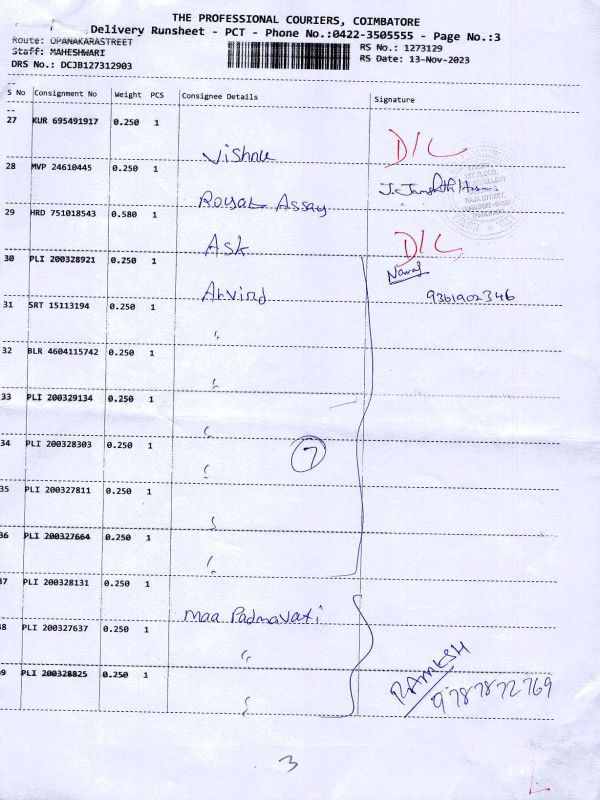 THE PROFESSIONAL COURIERS, COIMBATORE
Delivery Runsheet - PCT - Phone No.:0422-3505555 - Page No.:3
Route: OPANAKARASTREET
Staff: MAHESHWARI
DRS No.: DCJB127312903
RS No.: 1273129
RS Date: 13-Nov-2023
S No Consignment No Weight PCS Consignee Details Signature
27 KUR 695491917 0.250 1
Vishnu D/L
28 MVP 24610445 0.250 1
Royal Assay
29 HRD 751018543 0.580 1
Ask D/L
30 PLI 200328921 0.250 1
Nawaf
Arvind 9361902346
31 SRT 15113194 0.250 1
"
32 BLR 4604115742 0.250 1
"
33 PLI 200329134 0.250 1
"
34 PLI 200328303 0.250 1
" 7
35 PLI 200327811 0.250 1
"
36 PLI 200327664 0.250 1
"
37 PLI 200328131 0.250 1
Maa Padmavati
38 PLI 200327637 0.250 1
" RAMESH
39 PLI 200328825 0.250 1 9787872769
"
3